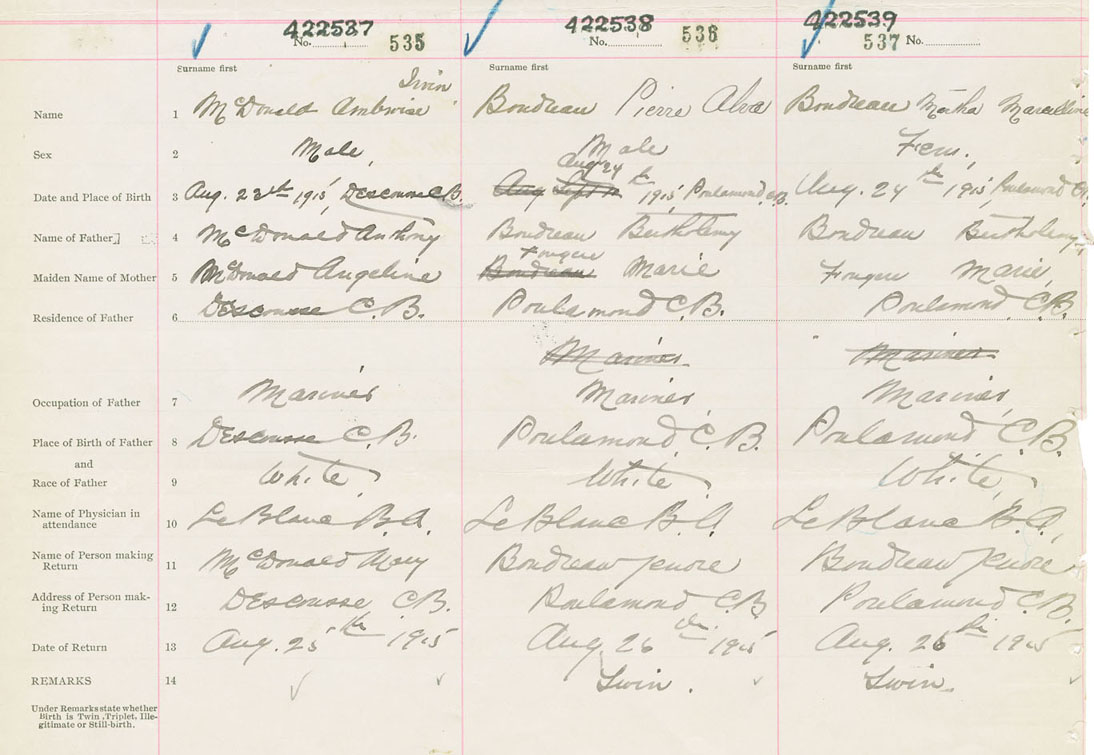 422537 422538 422539
No. 535 No. 536 537 No.
Surname first Surname first Surname first
Irvin
Name 1 McDonald Ambroise Boudreau Pierre Alva Boudreau Martha Marcelline
Sex 2 Male, Male Fem.,
Aug 24
Date and Place of Birth 3 Aug. 23th 1915, Descousse C.B. Aug Sept th 1915 Poulamond, C.B. Aug. 24th 1915, Poulamond C.B.
Name of Father 4 McDonald Anthony Boudreau Bertholemy Boudreau Bertholemy
Fougere
Maiden Name of Mother 5 McDonald Angeline Boudreau Marie Fougere Marie,
Residence of Father 6 Descousse C.B. Poulamond C.B. Poulamond, C.B.
Mariner Mariner
Occupation of Father 7 Mariner Mariner, Mariner,
Place of Birth of Father 8 Descousse C.B. Poulamond, C.B. Poulamond, C.B.
and
Race of Father 9 White, White, White,
Name of Physician in
attendance 10 LeBlanc B.A. LeBlanc B.A LeBlanc B.A,
Name of Person making
Return 11 McDonald Mary Boudreau Boudreau
Address of Person mak-
ing Return 12 Descousse, C.B. Poulamond, C.B. Poulamond C.B.
Date of Return 13 Aug. 25th 1915 Aug. 26th 1915 Aug. 26th 1915
REMARKS 14 Twin. Twin.
Under Remarks state whether
Birth is Twin, Triplet, Ille-
gitimate or Still-birth.